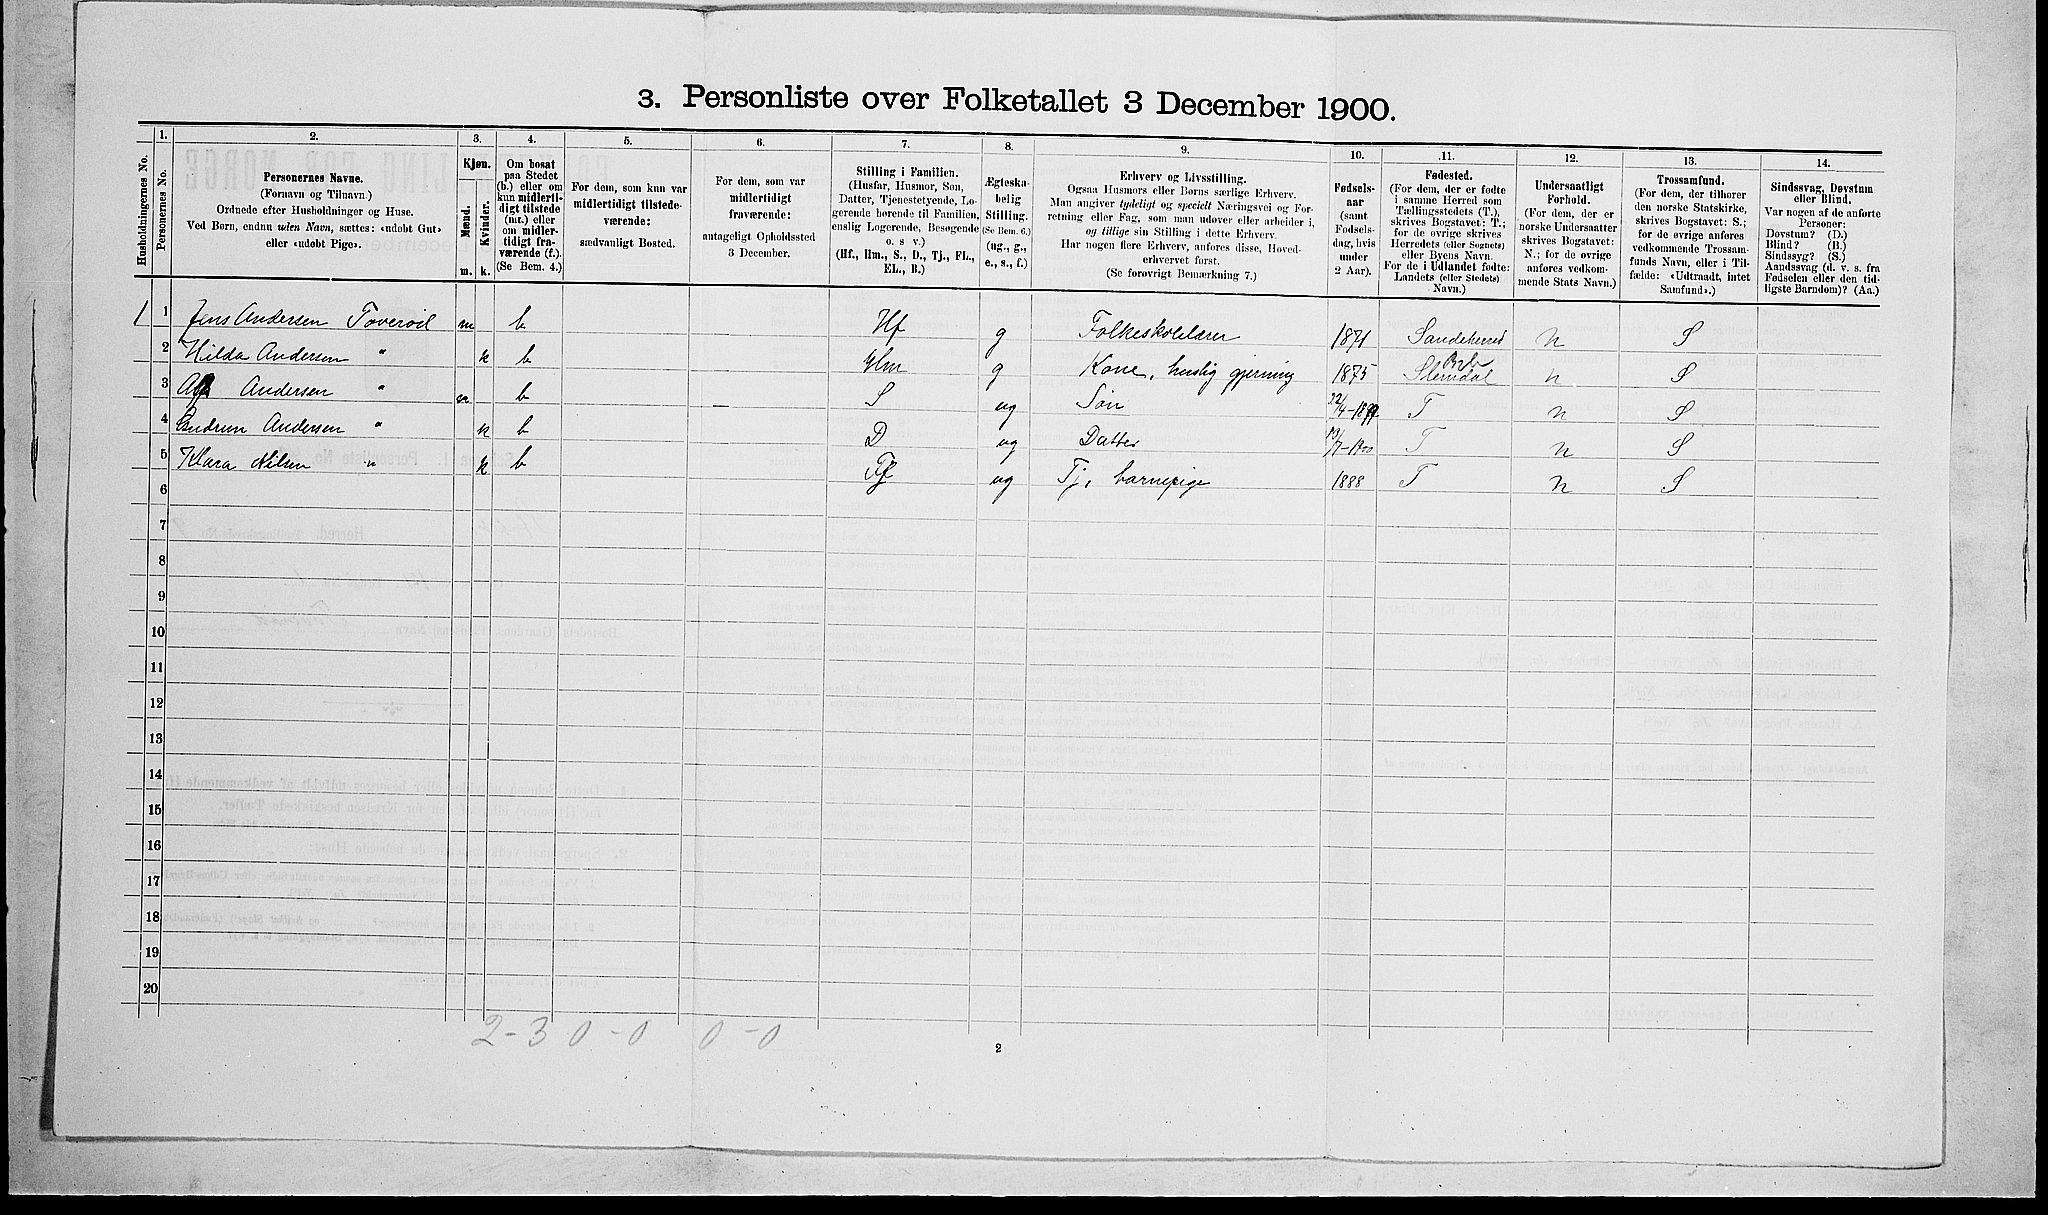 3. Personliste over Folketallet 3 December 1900.
Husholdningernes No.
1.
Personernes No.
2.
Personernes Navne.
(Fornavn og Tilnavn.)
Ordnede efter Husholdninger og Huse.
Ved Børn, endnu uden Navn, sættes: «udøbt Gut»
eller «udøbt Pige».
3.
Kjøn.
Mænd.
Kvinder.
m. k.
4.
Om bosat
paa Stedet
(b.) eller om
kun midlerti-
digt tilstede
(mt.) eller
om midler-
tidigt fra-
værende (f.).
(Se Bem. 4.)
5.
For dem, som kun var
midlertidigt tilstede-
værende:
sædvanligt Bosted.
6.
For dem, som var
midlertidigt
fraværende:
antageligt Opholdssted
3 December.
7.
Stilling i Familien.
(Husfar, Husmor, Søn,
Datter, Tjenestetyende, Lo-
gerende hørende til Familien,
enslig Logerende, Besøgende
o. s v.)
(Hf., Hm., S., D., Tj., FL.,
EL., B.)
8.
Ægteska-
belig
Stilling.
(Se Bem. 6.)
(ug., g.,
e., s., f.)
9.
Erhverv og Livsstilling.
Ogsaa Husmors eller Børns særlige Erhverv.
Man angiver tydeligt og specielt Næringsvei og For-
retning eller Fag, som man udøver eller arbeider i,
og tillige sin Stilling i dette Erhverv.
Har nogen flere Erhverv, anføres disse, Hoved-
erhvervet først.
(Se forøvrigt Bemærkning 7.)
10.
Fødsels-
aar
(samt
Fødsels-
dag, hvis
under
2 Aar).
11.
Fødested.
(For dem, der er fødte
i samme Herred som
Tællingsstedets (T.),
skrives Bogstavet: T.;
for de øvrige skrives
Herredets (eller Sognets)
eller Byens Navn.
For de i Udlandet fødte:
Landets (eller Stedets)
Navn.)
12.
Undersaatligt
Forhold.
(For dem, der er
norske Undersaatter
skrives Bogstavet:
N.; for de øvrige
anføres vedkom-
mende Stats Navn.)
13.
Trossamfund.
(For dem, der tilhører
den norske Statskirke,
skrives Bogstavet: S.;
for de øvrige anføres
vedkommende Trossam-
funds Navn, eller i Til-
fælde: «Udtraadt, intet
Samfund».)
14.
Sindssvag, Døvstum
eller Blind.
Var nogen af de anførte
Personer:
Døvstum? (D.)
Blind? (B.)
Sindssyg? (S.)
Aandssvag (d. v. s. fra
Fødselen eller den tid-
ligste Barndom)? (Aa.)
1 1 Jens Andersen m b Hf g Folkeskolelærer 1871 Sandeherred N S
2 Hilda Andersen " k b Hm g Kone, huslig gjerning 1875 Slemdal N S
3 Andersen " m b — S ug Søn T N S
4 Gudrun Andersen " k b D ug Datter T N S
5 Klara Nilsen " k b Tj ug Tj, barnepige 1888 T N S
6
7
8
9
10
11
12
13
14
15
16
17
18
19
20
2-3 0-0 0-0
2